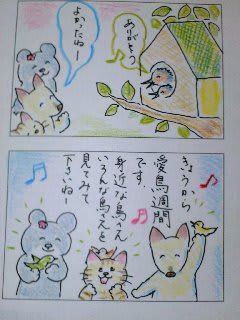 ありがとう
よかったねー
きょうから
愛鳥週間
です
身近な鳥さん
いろんな鳥さんを
見てみて
下さいねー